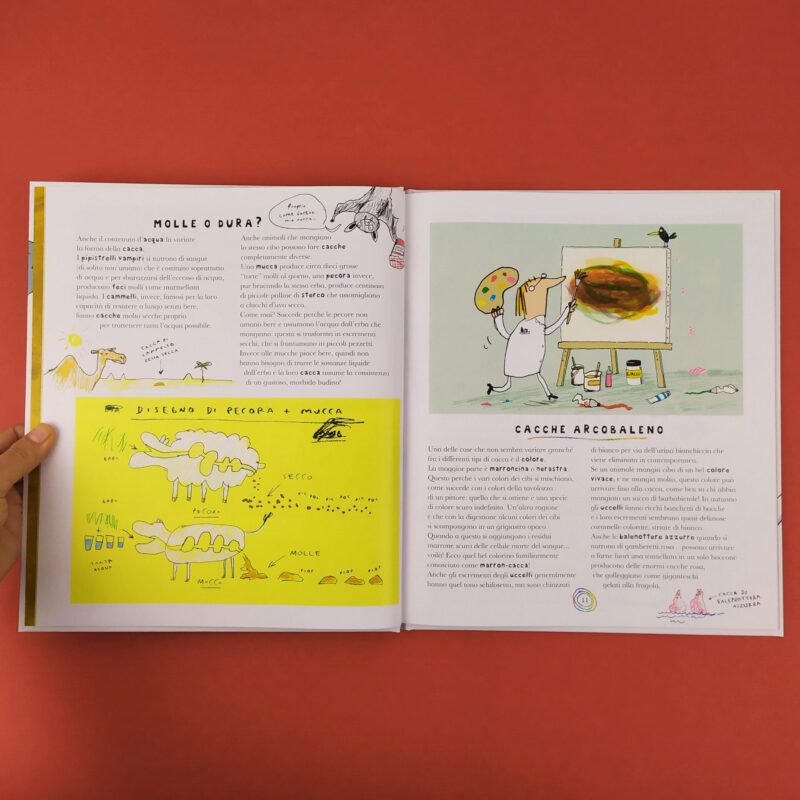 Proprio
come faceva
mia nonna...
MOLLE O DURA?
Anche il contenuto d'acqua fa variare
la forma della cacca.
I pipistrelli vampiri si nutrono di sangue
(di solito non umano) che è costituito soprattutto
di acqua e per sbarazzarsi dell'eccesso di acqua,
producono feci molli come marmellata
liquida. I cammelli, invece, famosi per la loro
capacità di resistere a lungo senza bere,
fanno cacche molto secche proprio
per trattenere tutta l'acqua possibile.
CACCA DI
CAMMELLO
BELLA SECCA
Anche animali che mangiano
lo stesso cibo possono fare cacche
completamente diverse.
Una mucca produce circa dieci grosse
"torte" molli al giorno, una pecora invece,
pur brucando la stessa erba, produce centinaia
di piccole palline di sterco che assomigliano
a chicchi d'uva secca.
Come mai? Succede perché le pecore non
amano bere e assumono l'acqua dall'erba che
mangiano: questa si trasforma in escrementi
secchi, che si frantumano in piccoli pezzetti.
Invece alle mucche piace bere, quindi non
hanno bisogno di trarre le sostanze liquide
dall'erba e la loro cacca assume la consistenza
di un gustoso, morbido budino!
DISEGNO DI PECORA + MUCCA
ERBA
SECCO
PECORA
ERBA
MOLLE
TANTA
ACQUA
MUCCA
PLOP
PLOP
PLOP
CACCHE ARCOBALENO
Una delle cose che non sembra variare granché
fra i differenti tipi di cacca è il colore.
La maggior parte è marroncina o nerastra.
Questo perché i vari colori dei cibi si mischiano,
come succede con i colori della tavolozza
di un pittore: quello che si ottiene è una specie
di colore scuro indefinito. Un'altra ragione
è che con la digestione alcuni colori dei cibi
si scompongono in un grigiastro opaco.
Quando a questo si aggiungono i residui
marrone scuro delle cellule morte del sangue...
voilà! Ecco quel bel colorino familiarmente
conosciuto come marron-cacca!
Anche gli escrementi degli uccelli generalmente
hanno quel tono schifosetto, ma sono chiazzati
di bianco per via dell'urina bianchiccia che
viene eliminata in contemporanea.
Se un animale mangia cibo di un bel colore
vivace, e ne mangia molto, questo colore può
arrivare fino alla cacca, come ben sa chi abbia
mangiato un sacco di barbabietole! In autunno
gli uccelli fanno ricchi banchetti di bacche
e i loro escrementi sembrano quasi deliziose
caramelle colorate, striate di bianco.
Anche le balenottere azzurre quando si
nutrono di gamberetti rosa – possono arrivare
a farne fuori una tonnellata in un solo boccone –
producono delle enormi cacche rosa,
che galleggiano come giganteschi
gelati alla fragola.
11
CACCA DI
BALENOTTERA
AZZURRA